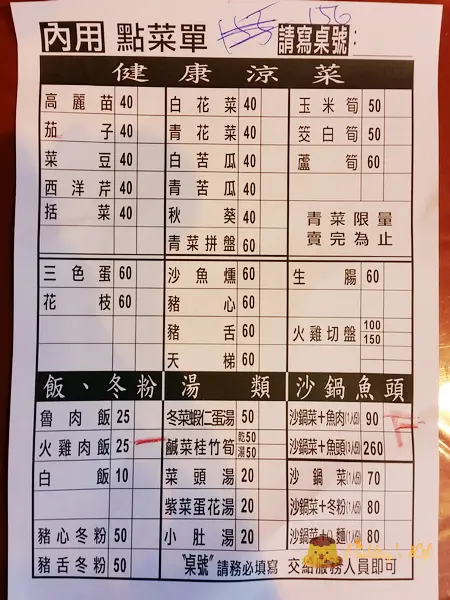 內用 點菜單 155 156 請寫桌號：
健康涼菜
高麗苗 40 白花菜 40 玉米筍 50
茄子 40 青花菜 40 筊白筍 50
菜豆 40 白苦瓜 40 蘆筍 60
西洋芹 40 青苦瓜 40
括菜 40 秋葵 40 青菜限量
青菜拼盤 60 賣完為止
三色蛋 60 沙魚燻 60 生腸 60
花枝 60 豬心 60
豬舌 60 火雞切盤 100 150
天梯 60
飯、冬粉 湯類 沙鍋魚頭
魯肉飯 25 冬菜蝦仁蛋湯 50 沙鍋菜+魚肉(1人份) 90
火雞肉飯 25 鹹菜桂竹筍 乾50 湯50 沙鍋菜+魚頭 260
白飯 10 菜頭湯 20 沙鍋菜(1人份) 70
紫菜蛋花湯 20 沙鍋菜+冬粉(1人份) 80
豬心冬粉 50 小肚湯 20 沙鍋菜+麵(1人份) 80
豬舌冬粉 50 "桌號"請務必填寫 交給服務人員即可